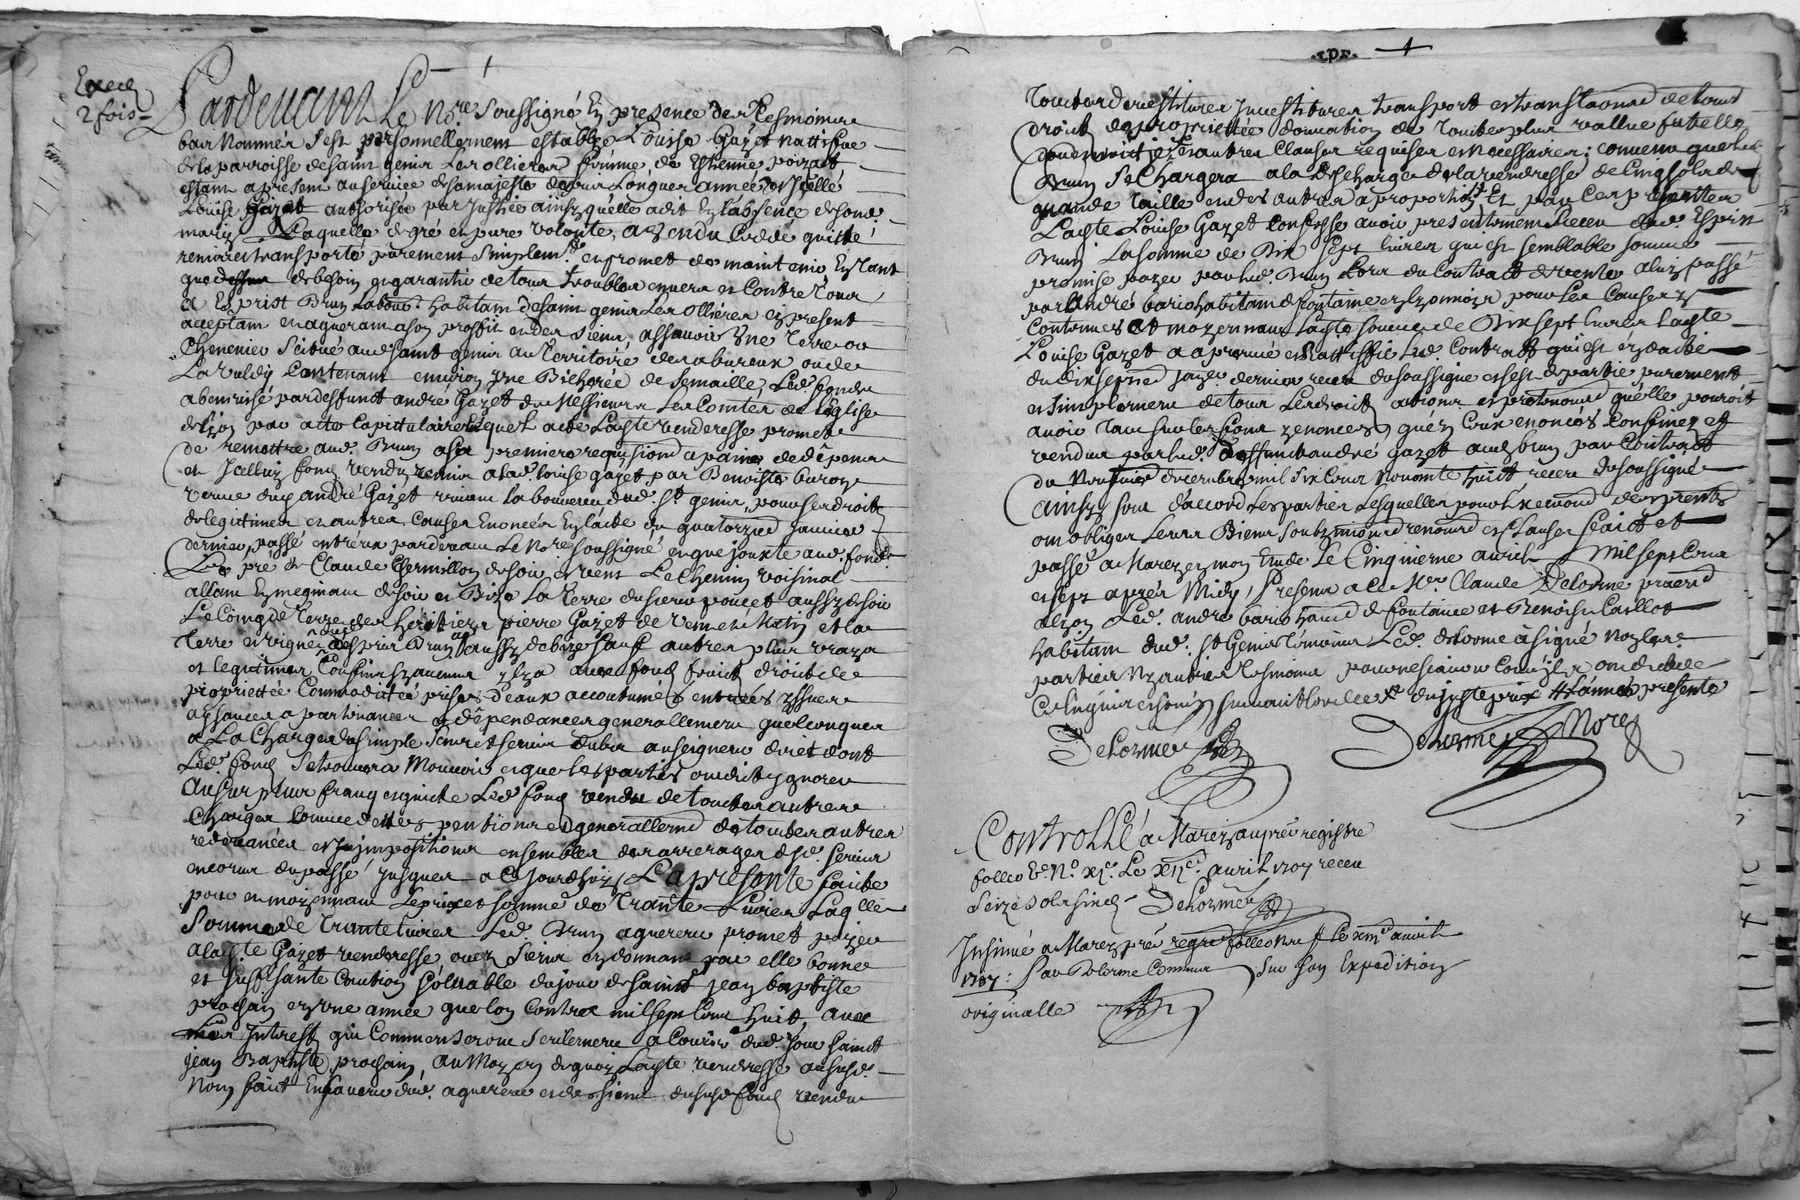 Exped
2 fois
Pardevant Le No.re Soussigné Et presence des Tesmoins
bas Nommés S'est personnellement establye Louise Gazet nattifue
de la parroisse de saint genis Les ollieres femme de Estienne poizat
estant a present au service de sa majesté depuis Longues années, Icelle
Louise Gazet authorisée par Justice ainsy quelle a dit En labsence de son
mary Laquelle de gré et pure volonté, a vendu Cedde quitté
remis et transporté purement Simplem.t et promet de maintenir En tant
que de besoin et garantir de tous troubles envers et Contre Tous
A Esprit Brun Labour.r habitant de Saint genis Les Ollieres cy present
acceptant et aquerant a son proffit et des siens, assavoir Une Terre ou
Chenevier Scitué aud. Saint genis au Territoire de
contenant environ Une Bicherée de Semaille, Led. fond
abenevisé par deffunct andre Gazet de Messieurs Les Comtes de L'Eglise
de Lyon par acte Capittulaire Lequel acte Lad.te venderesse promet
de remettre aud. Brun a sa premiere requisition a paine de dépens
et Icelluy fond vendu remis a lad. Louise Gazet par Benoiste
veuve dud. andré Gazet vivant dud. St. genis, pour ses droits
de legitimes et autres Causes Enoncées En lacte du quatorzied Janvier
dernier, passé entr'eux pardevant Le No.re Soussigné et que jouxte aud. fond
Les pré de Claude Chermillon de soir et vent Le Chemin voisinal
allant de soir et Bize La Terre du sieur poncet aussy de soir
Le Coing de Terre des héritiers pierre Gazet de vent et Matin et la
Terre et vigne dud. Esprit Brun aussy de bize Sauf autres plus vrays
et legitimes Confins sy aucuns y a avec fond fruict droict de
propriettée Commodittés prises d'eaux accoutumées entrées yssues
aysances apartenances et dépendances generallement quelconques
a La Charge du simple Servis et Servis dubs au seigneur direct dont
Led. fond Se trouvera Mouvoir et que les parties ont dit ygnorer
Au surplus franc et quicte Led. fond vendu de touttes autres
Charges Comme dettes pentions et generallem.t de touttes autres
redevances et impositions ensembles des arrerages desd. servis
encorus du passé jusques a Ce Jourdhuy La presente faicte
pour et moyennant Le prix et somme de Trante Livres Laq.lle
Somme de Trante livres Led. Brun aquereur promet payer
a lad.te Gazet venderesse ou es Siens en donnant par elle bonne
et suffisante Caution Solvable du jour de Saint Jean baptiste
prochain en une année que lon Contera mil sept Cent huit, avec
Les Intrest qui Commenseront Seulement a Courir dud. jour Saint
Jean Baptiste prochain, au Moyen de quoy Lad.te venderesse aususd.
Nom faict En faveur dud. aquereur et des siens du susd. fond vendu
Touttes devestitures Investitures transport et translations de tous
droits de propriettée donnation de touttes plus vallue futelle
et autres Clauses requises et Necessaires; Convenu que led.
Brun Se Chargera a la descharge de la venderesse de Cinq sols de
grande Taille et des autres a proportion Et par Ces presentes
Lad.te Louise Gazet Confesse avoir presentement Receu dud. Esprit
Brun La Somme de Dix Sept livres qui est semblable Somme
promise payer par led. Brun Lors du Contract de vente a luy passé
par André bario habitant de fontaine en Lyonnois pour Les Causes y
Contenues et moyennant Lad.te Somme de Dix sept livres Lad.te
Louise Gazet a aprouvé et Rattiffié Led. Contract qui est en datte
du dixseptied Janv.r dernier receu du soussigné et s'est departie purement
et simplement de tous Les droits actions et pretentions quelle pouroit
avoir tant sur les fond y enoncés, qu'en Ceux enoncés Confinés et
vendus par led. deffunct andré gazet aud. brun par Contract
du decembre mil six Cent Nonante huict receu du soussigné
Ainsy sont d'accord Les parties Lesquelles pour L'execution des presentes
ont obligés Leurs Biens Soubzmissions renontions et Clauses faict et
passé a Marcy en mon Etude Le Cinquieme avril Mil Sept Cent
et sept aprés Midy, Present a Ce M.re Claude Delorme praticien
a Lyon Led. andré bario hab.t de fontaine et Benoist Caillot
habitant dud. St Genis Témoins Led. delorme à signé Non les
parties Ny autres Tesmoins pour ne sçavoir Ecrire de Ce
enquis et sommés suivant Lord.ce du juste prix L'année presente
Delorme Delorme No.re
Controllé a Marcy au pre. registre
folleo 6e No. xj.e Le XIIe. avril 1707 receu
seize sols six d. Delorme
Insinué a Marcy pré regre folleo Le xme. avril
1707: Par Delorme Commis Sur Son Expedition
originalle